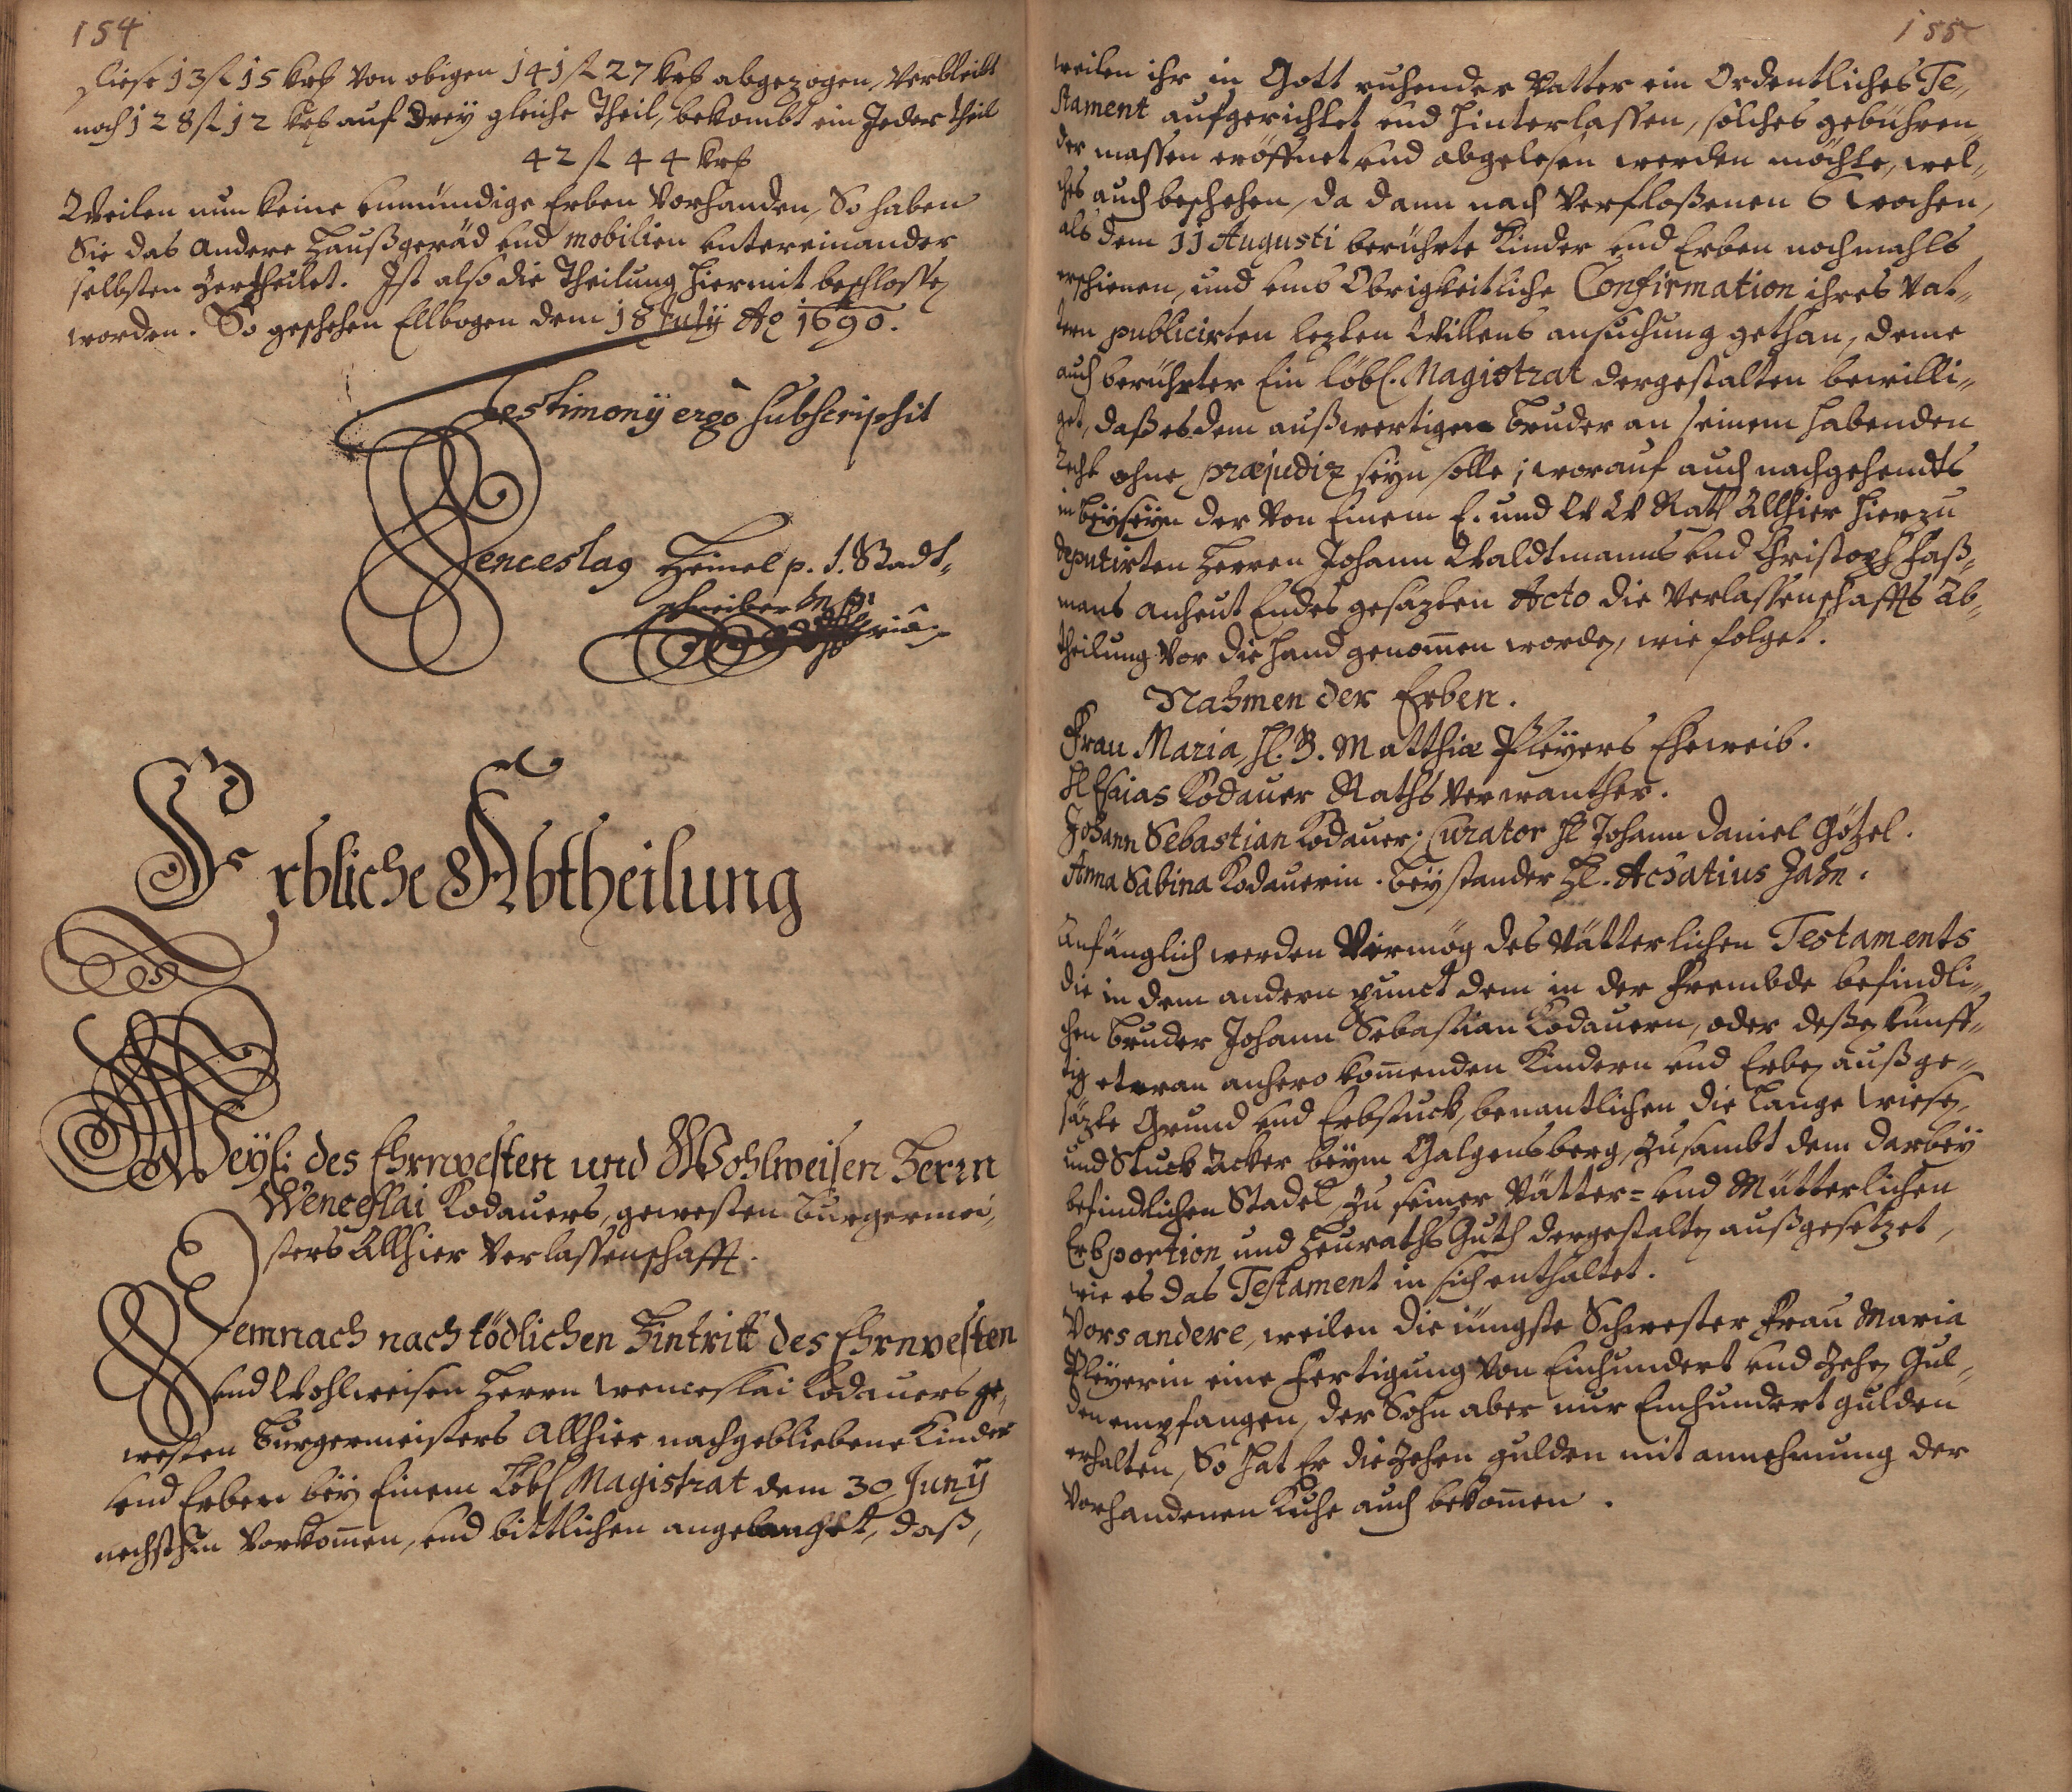 154
diese 13 fl 15 krß von obigen 141 fl 27 krß abgezogen, verbleibt
noch 128 fl 12 krß auf Drey gleiche Theil, bekombt ein Jeder theil
42 fl 44 krß
Weilen nun keine unmündige Erben vorhanden, So haben
Sie das andere Haußgeräd und mobilien untereinander
selbsten zertheilet. Ist also die Theilung hiermit beschlossen
worden. So geschehen Ellbogen dem 18 July Ao 1690.
Testimonij ergo subscripsit
Wenceslaq Heinel p. t. Stadt-
schreiber mp
Erbliche Abtheilung
Weyl: des Ehrnvesten und Wohlweisen Herrn
Wenceslai Kodauers, gewesten Burgermei-
sters Allhier Verlassenschafft.
Demnach nach tödlichen Hintritt des Ehrnvesten
und Wohlweisen Herrn Wenceslai Kodauers ge-
westen Burgermeisters Allhier nachgebliebene Kinder
und Erben bey Einem Löbl Magistrat dem 30 Juny
nechsthin vorkomen, und bittlichen angelanget, daß,
155
weilen ihr in Gott ruhender Vatter ein Ordentliches Te-
stament aufgerichtet und hinterlassen, solches gebühren-
der massen eröffnet und abgelesen werden möchte, wel-
ches auch beschehen, da dann nach verfloßenen 6 wochen,
als dem 11 Augusti berührte Kinder und Erben nochmahls
erschienen, und umb Obrigkeitliche Confirmation ihres Vat-
tern publicirten lezten Willens ansuchung gethan, deme
auch berührter Ein löbl. Magistrat dergestalten bewilli-
get, daß es dem außwertigen Bruder an seinem habenden
Recht ohne præjudiz seyn solle; worauf auch nachgehendts
in beyseyn der von Einem E. und W W Rath Allhier hierzu
deputirten Herren Johann Waldtmanns und Christoph Faß-
mans anheut Endes gesazten Acto die Verlassenschaffts Ab-
theilung vor die hand genomen worden, wie folget.
Nahmen der Erben.
Frau Maria, H. B. Matthiæ Pleyers Eheweib.
H Esaias Kodauer Raths Verwanther.
Johann Sebastian Kodauer; Curator H Johann Daniel Götzel.
Anna Sabina Kodauerin. Beystander H. Achatius Jahn.
Anfänglich werden Vermög des Vätterlichen Testaments
die in dem andern punct dem in der Frembde befindli-
chen Bruder Johann Sebastian Kodauern, oder deßen künff-
tig etwan anhero komenden Kindern und Erben außge-
säzte Grund und Erbstuck, benantlichen die Lange Wiesen,
und Stuck Acker beym Galgensberg, zusambt dem darbey
befindlichen Stadel, zu seiner Vätter= und Mütterlichen
Erbportion und Heuraths Guth dergestalten außgesetzet,
wie es das Testament in sich enthaltet.
Vors andere, weilen die jüngste Schwester Frau Maria
Pleyerin eine Fertigung von Einhundert und Zehen Gul-
den empfangen, der Sohn aber nur Einhundert gulden
erhalten, So hat Er die Zehen gulden mit annehmung der
vorhandenen Kuhe auch bekomen.